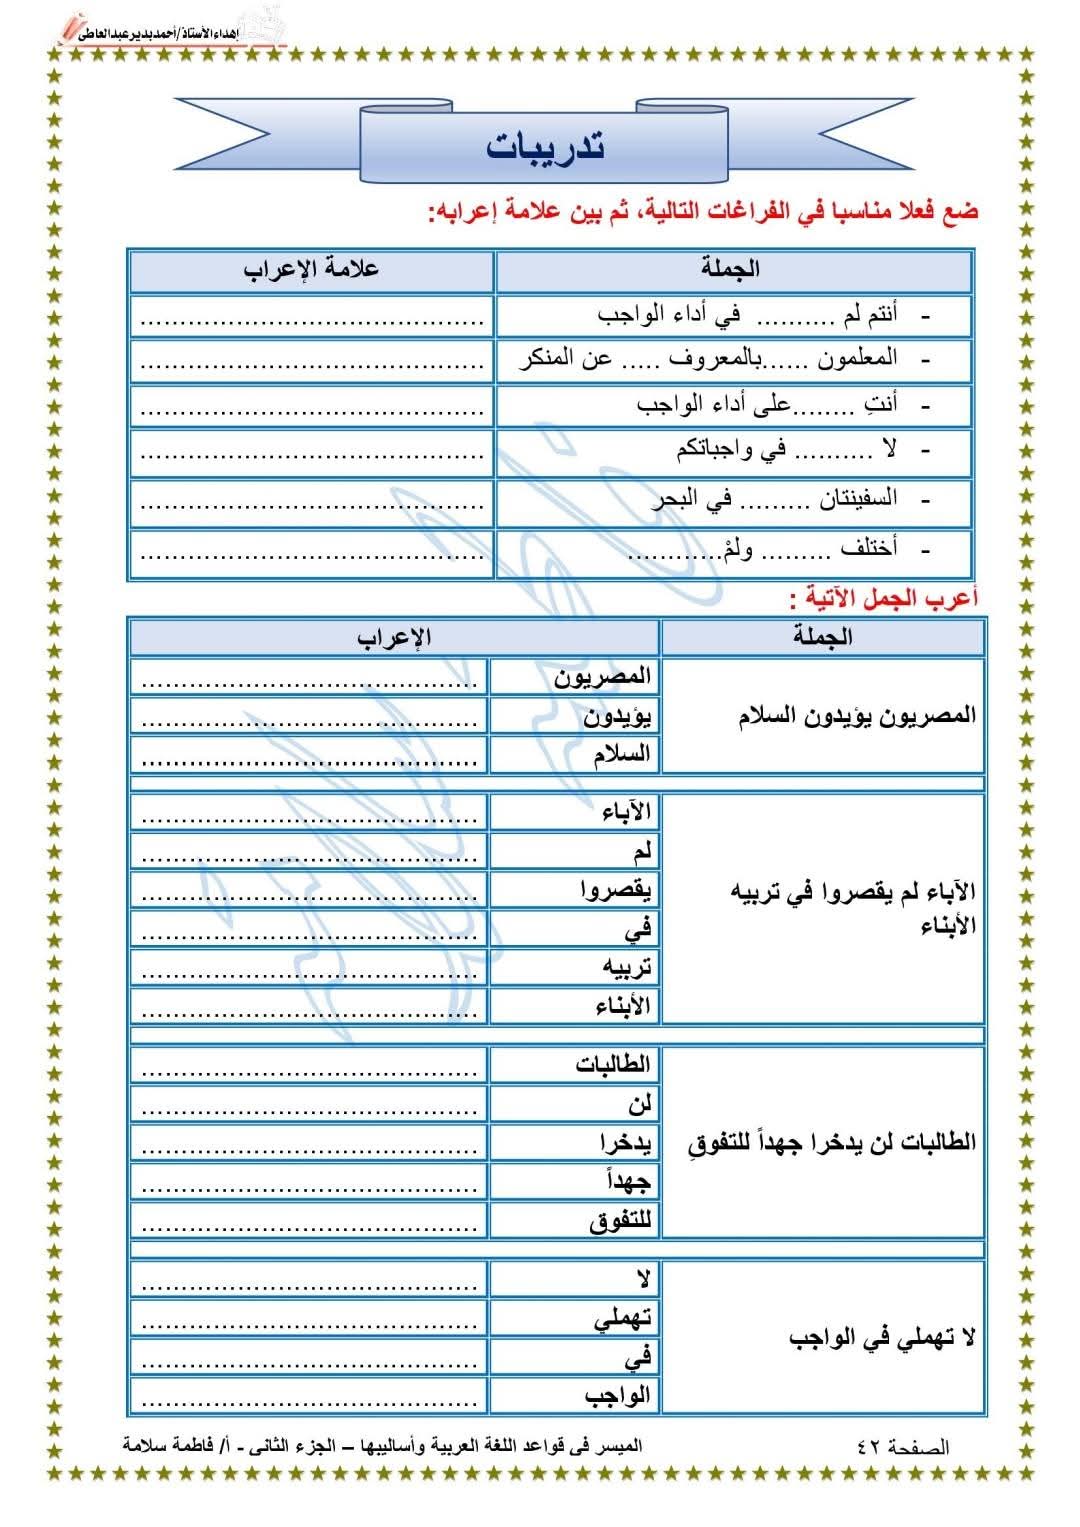 إهداء الأستاذ/أحمد بدير عبد العاطى
تدريبات
ضع فعلا مناسبا في الفراغات التالية، ثم بين علامة إعرابه:
الجملة	علامة الإعراب
- أنتم لم .......... في أداء الواجب	...........................................
- المعلمون ......بالمعروف ..... عن المنكر	...........................................
- أنتِ ........على أداء الواجب	...........................................
- لا .......... في واجباتكم	...........................................
- السفينتان ......... في البحر	...........................................
- أختلف ......... ولمْ............	...........................................
أعرب الجمل الآتية :
الجملة	الإعراب
المصريون يؤيدون السلام
المصريون	..........................................
يؤيدون	..........................................
السلام	..........................................
الآباء لم يقصروا في تربيه
الأبناء
الآباء	..........................................
لم	..........................................
يقصروا	..........................................
في	..........................................
تربيه	..........................................
الأبناء	..........................................
الطالبات لن يدخرا جهداً للتفوقِ
الطالبات	..........................................
لن	..........................................
يدخرا	..........................................
جهداً	..........................................
للتفوق	..........................................
لا تهملي في الواجب
لا	..........................................
تهملي	..........................................
في	..........................................
الواجب	..........................................
الصفحة ٤٢	الميسر فى قواعد اللغة العربية وأساليبها – الجزء الثانى - أ/ فاطمة سلامة